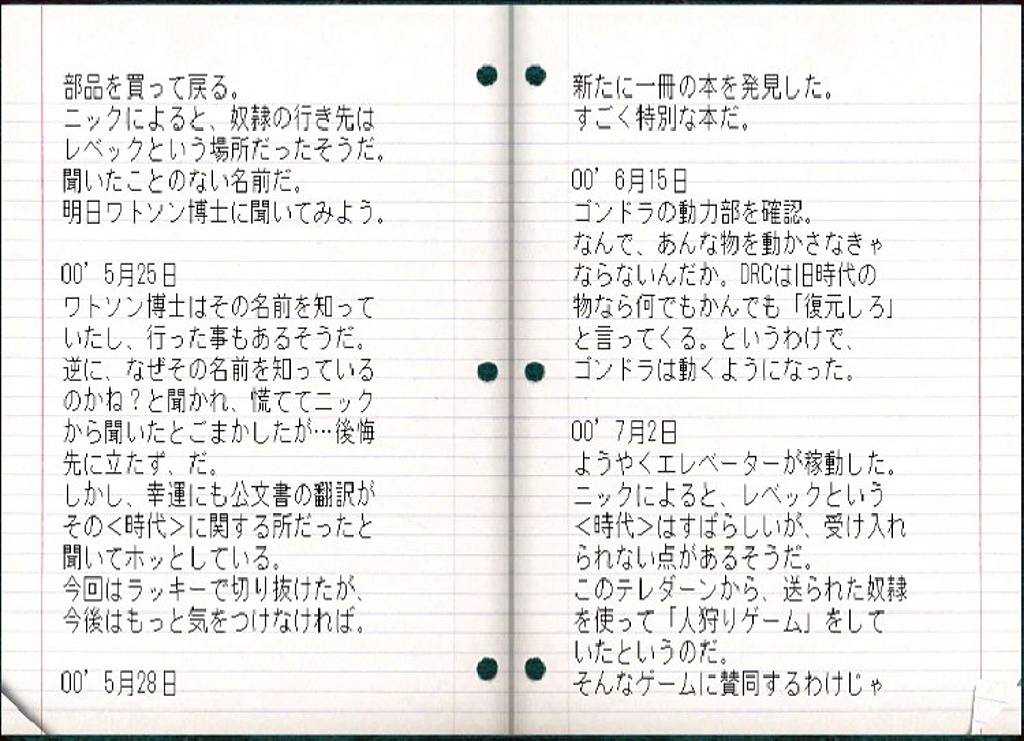 部品を買って戻る。
ニックによると、奴隷の行き先は
レベックという場所だったそうだ。
聞いたことのない名前だ。
明日ワトソン博士に聞いてみよう。
00’ 5月25日
ワトソン博士はその名前を知って
いたし、行った事もあるそうだ。
逆に、なぜその名前を知っている
のかね？と聞かれ、慌ててニック
から聞いたとごまかしたが…後悔
先に立たず、だ。
しかし、幸運にも公文書の翻訳が
その<時代>に関する所だったと
聞いてホッとしている。
今回はラッキーで切り抜けたが、
今後はもっと気をつけなければ。
00’ 5月28日
新たに一冊の本を発見した。
すごく特別な本だ。
00’ 6月15日
ゴンドラの動力部を確認。
なんで、あんな物を動かさなきゃ
ならないんだか。DRCは旧時代の
物なら何でもかんでも「復元しろ」
と言ってくる。というわけで、
ゴンドラは動くようになった。
00’ 7月2日
ようやくエレベーターが稼動した。
ニックによると、レベックという
<時代>はすばらしいが、受け入れ
られない点があるそうだ。
このテレダーンから、送られた奴隷
を使って「人狩りゲーム」をして
いたというのだ。
そんなゲームに賛同するわけじゃ